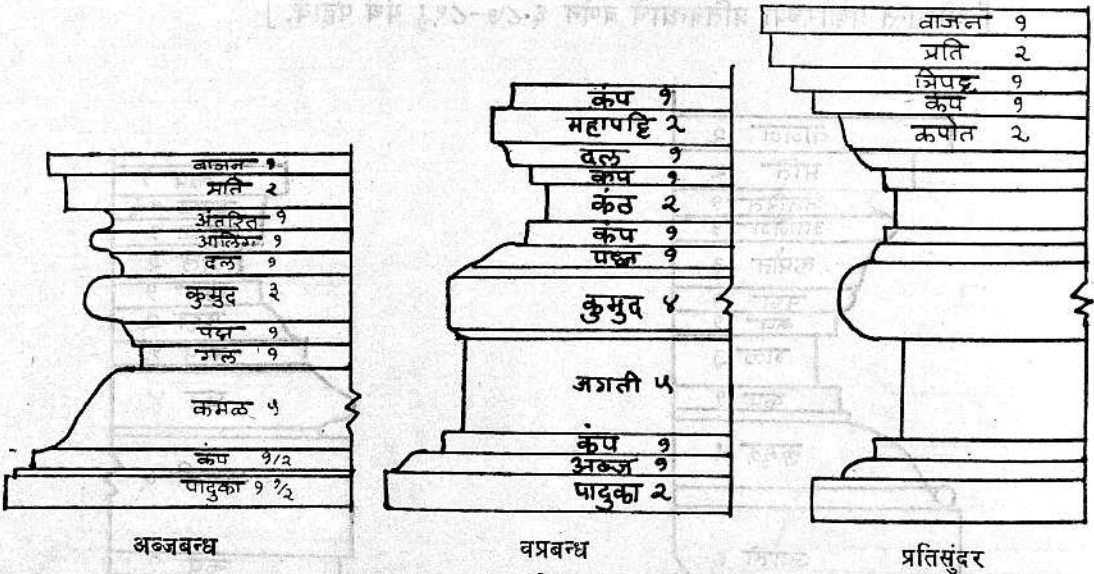 वाजन १
प्रति २
अंतरित १
आलिंग १
दल १
कुमुद ३
पद्म १
गल १
कमळ ५
कंप १/२
पादुका १ १/२
अब्जबन्ध
कंप १
महापट्टि २
दल १
कंप १
कंठ २
कंप १
पद्म १
कुमुद ४
जगती ५
कंप १
अब्ज १
पादुका २
वप्रबन्ध
वाजन १
प्रति २
त्रिपट्ट १
कंप १
कपोत २
प्रतिसुंदर